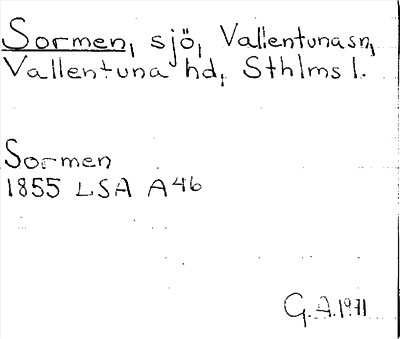 Sormen, sjö, Vallentuna sn,
Vallentuna hd, Sthlms l.
Sormen
1855 LSA A46
G.A. 1971